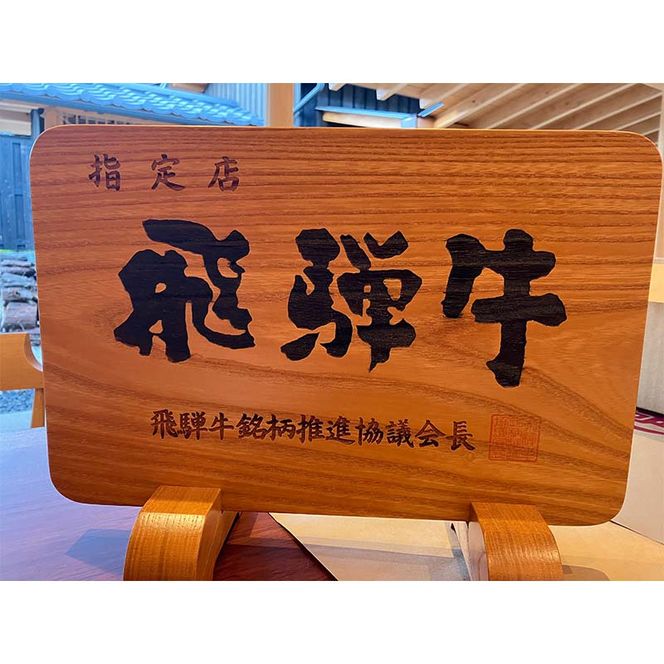 指定店
飛騨牛
飛騨牛銘柄推進協議会長